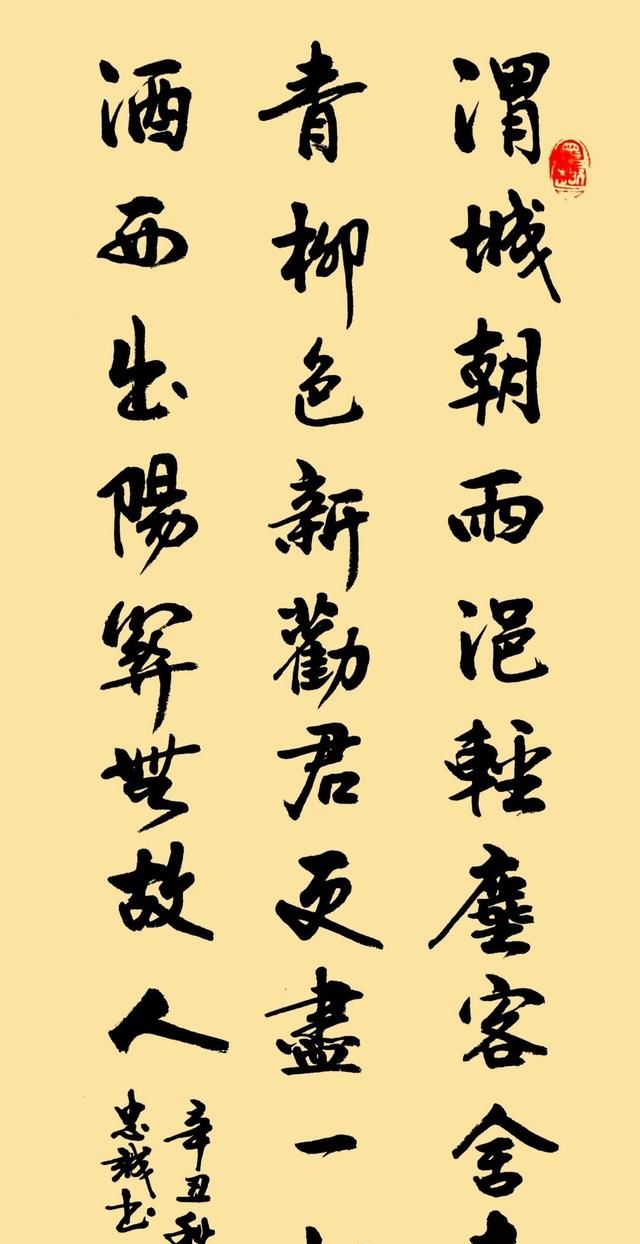 渭城朝雨浥輕塵客舍
青柳色新勸君更盡一
酒西出陽關無故人
辛丑秋
忠書